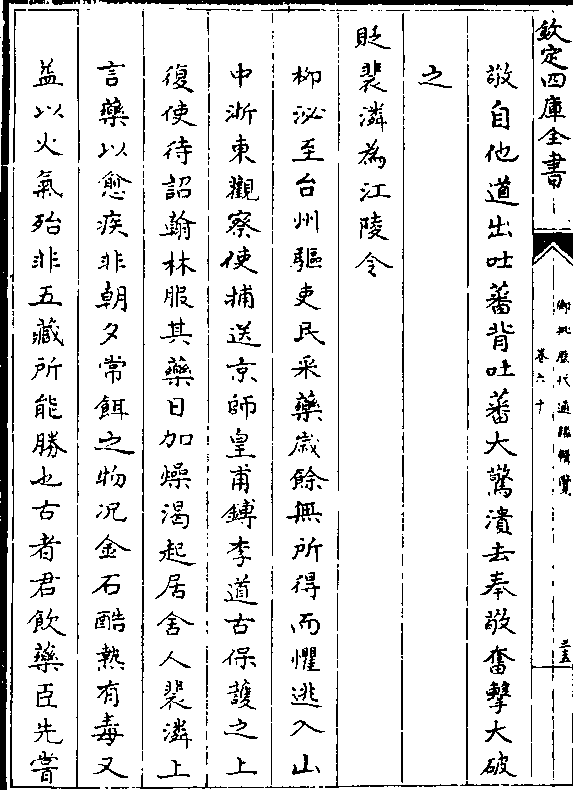 欽定四庫全書
御批歷代通鑑輯覽
卷六十
三五
敬自他道出吐蕃背吐蕃大驚潰去奉敬奮擊大破
之
貶裴潾為江陵令
柳泌至台州驅吏民采藥歲餘無所得而懼逃入山
中浙東觀察使捕送京師皇甫鎛李道古保護之上
復使待詔翰林服其藥日加燥渴起居舍人裴潾上
言藥以愈疾非朝夕常餌之物况金石酷熱有毒又
益以火氣殆非五藏所能勝也古者君飲藥臣先嘗